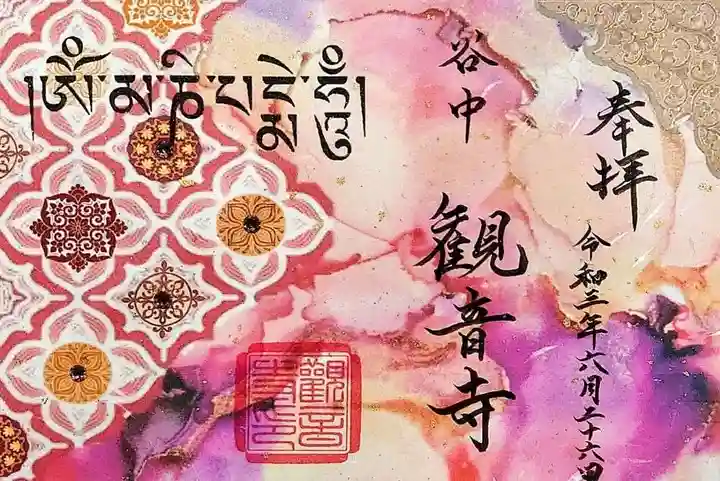 奉拝
令和三年六月二十六日
谷中
観音寺
༄༅།ཨོཾ་མ་ཎི་པདྨེ་ཧཱུྃ།